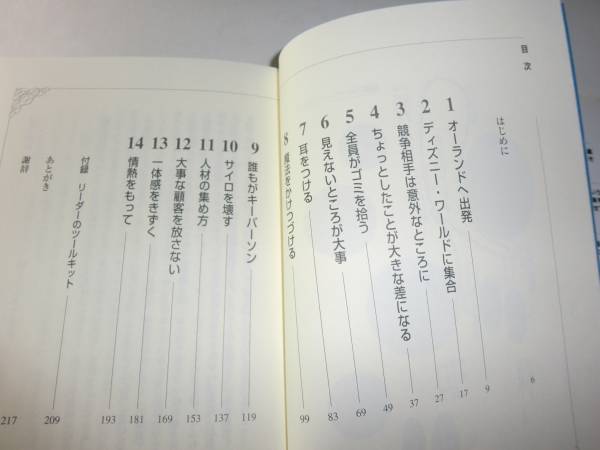 目次
はじめに 6
1 オーランドへ出発 9
2 ディズニー・ワールドに集合 17
3 競争相手は意外なところに 27
4 ちょっとしたことが大きな差になる 37
5 全員がゴミを拾う 49
6 見えないところが大事 69
7 耳をつける 83
8 魔法をかけつづける 99
9 誰もがキーパーソン 119
10 サイロを壊す 137
11 人材の集め方 153
12 大事な顧客を放さない 169
13 一体感をきずく 181
14 情熱をもって 193
付録 リーダーのツールキット 209
あとがき 217
謝辞